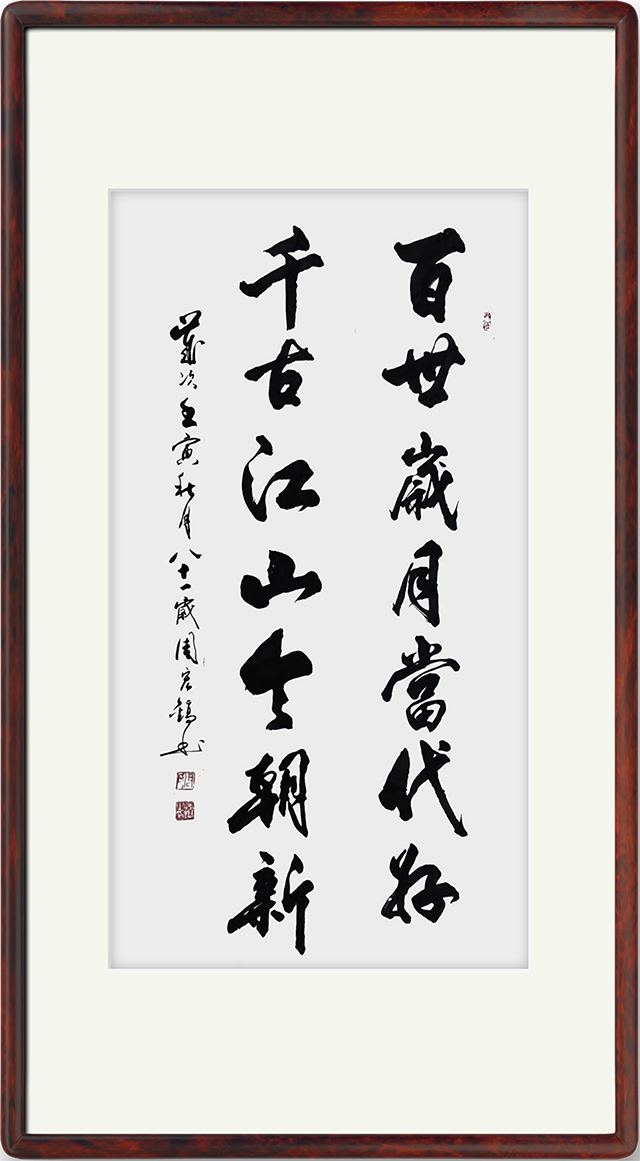 百世歲月當代好
千古江山今朝新
歲次壬寅秋月八十一歲周宏鶴书